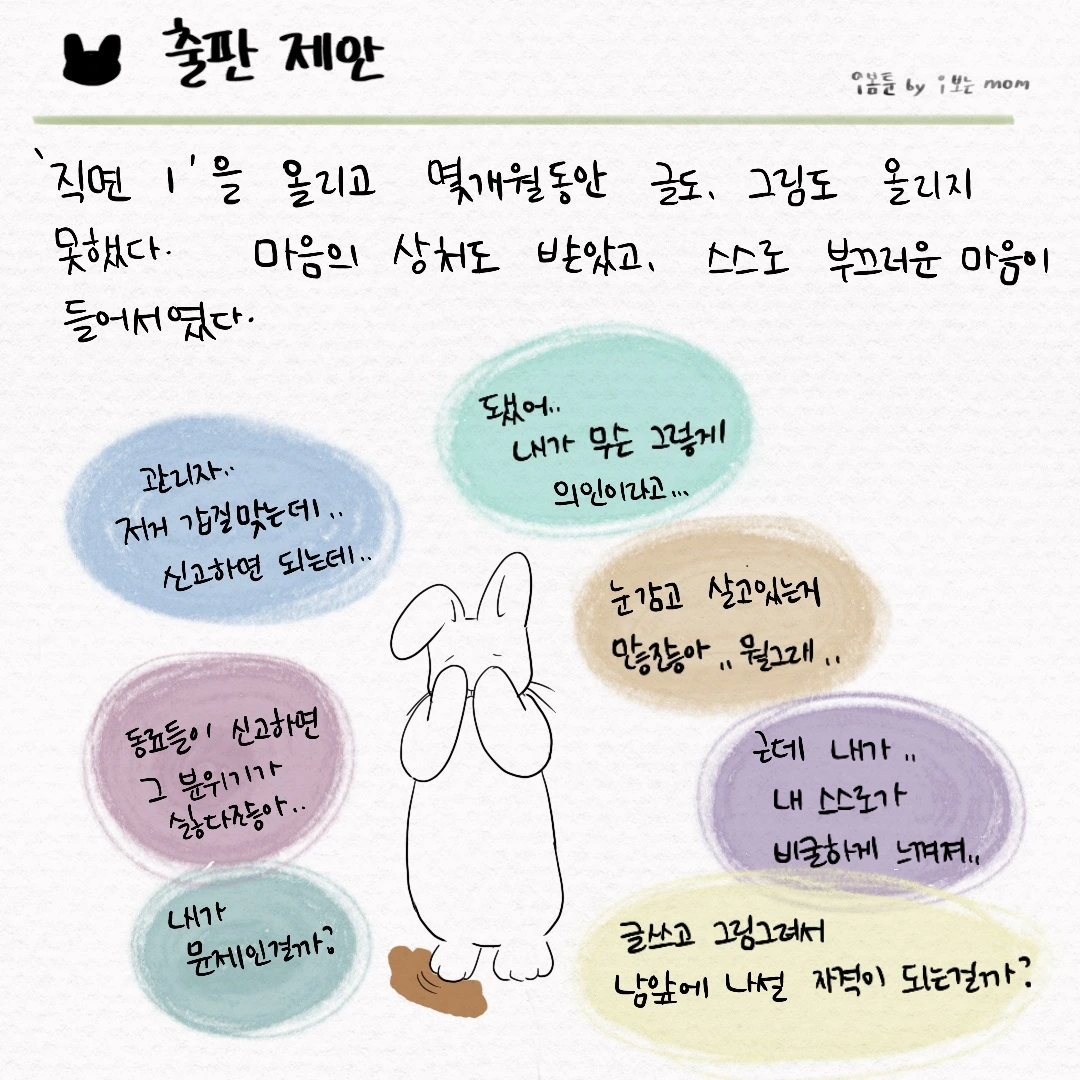 출판 제안
아봄툰 by i보는 mom
'직면 1'을 올리고 몇개월동안 글도, 그림도 올리지
못했다. 마음의 상처도 받았고, 스스로 부끄러운 마음이
들어서였다.
됐어..
내가 무슨 그렇게
의인이라고...
관리자..
저거 갑질맞는데..
신고하면 되는데..
눈감고 살고있는게
만흥잖승아.. 뭘그래..
동료들이 신고하면
그 분위기가
싫다잖승아..
근데 내가..
내 스스로가
비굴하게 느껴져..
내가
문제인걸까?
글쓰고 그림그려서
남앞에 나설 자격이 되는걸까?